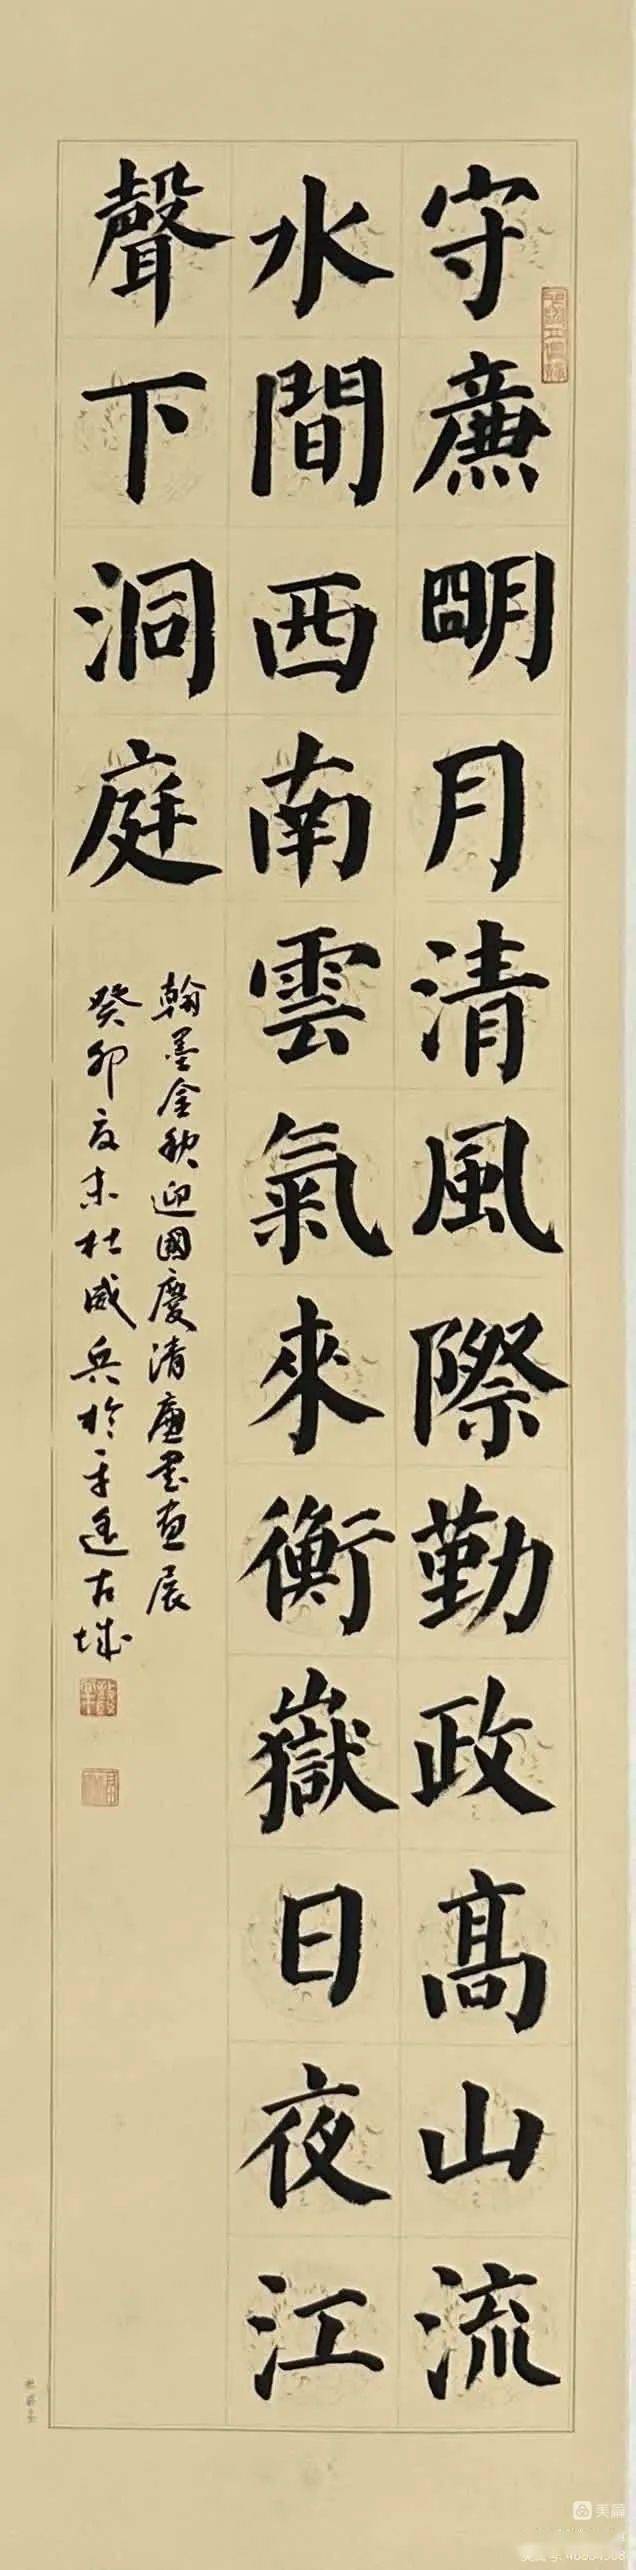 守廉明月清風際勤政髙山流
水間西南雲氣來衡嶽日夜江
聲下洞庭
翰墨金秋迎國慶清廉書画展
癸卯夏末杜威兵於平遥古城
美篇